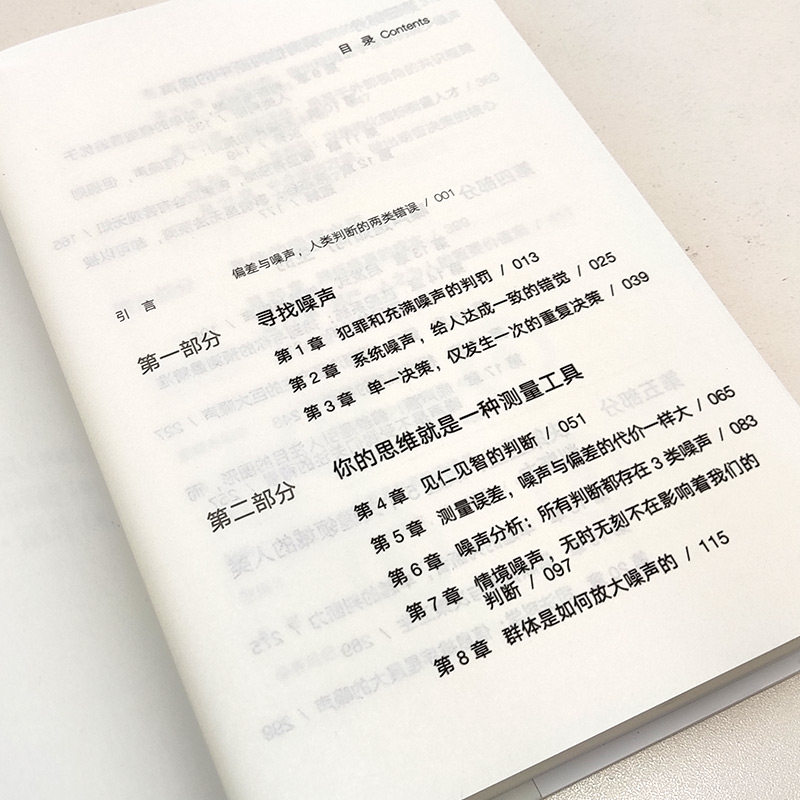 目 录 Contents
引 言 偏差与噪声，人类判断的两类错误 / 001
第一部分 寻找噪声
第 1 章 犯罪和充满噪声的判罚 / 013
第 2 章 系统噪声，给人达成一致的错觉 / 025
第 3 章 单一决策，仅发生一次的重复决策 / 039
第二部分 你的思维就是一种测量工具
第 4 章 见仁见智的判断 / 051
第 5 章 测量误差，噪声与偏差的代价一样大 / 065
第 6 章 噪声分析：所有判断都存在 3 类噪声 / 083
第 7 章 情境噪声，无时无刻不在影响着我们的
判断 / 097
第 8 章 群体是如何放大噪声的 / 115